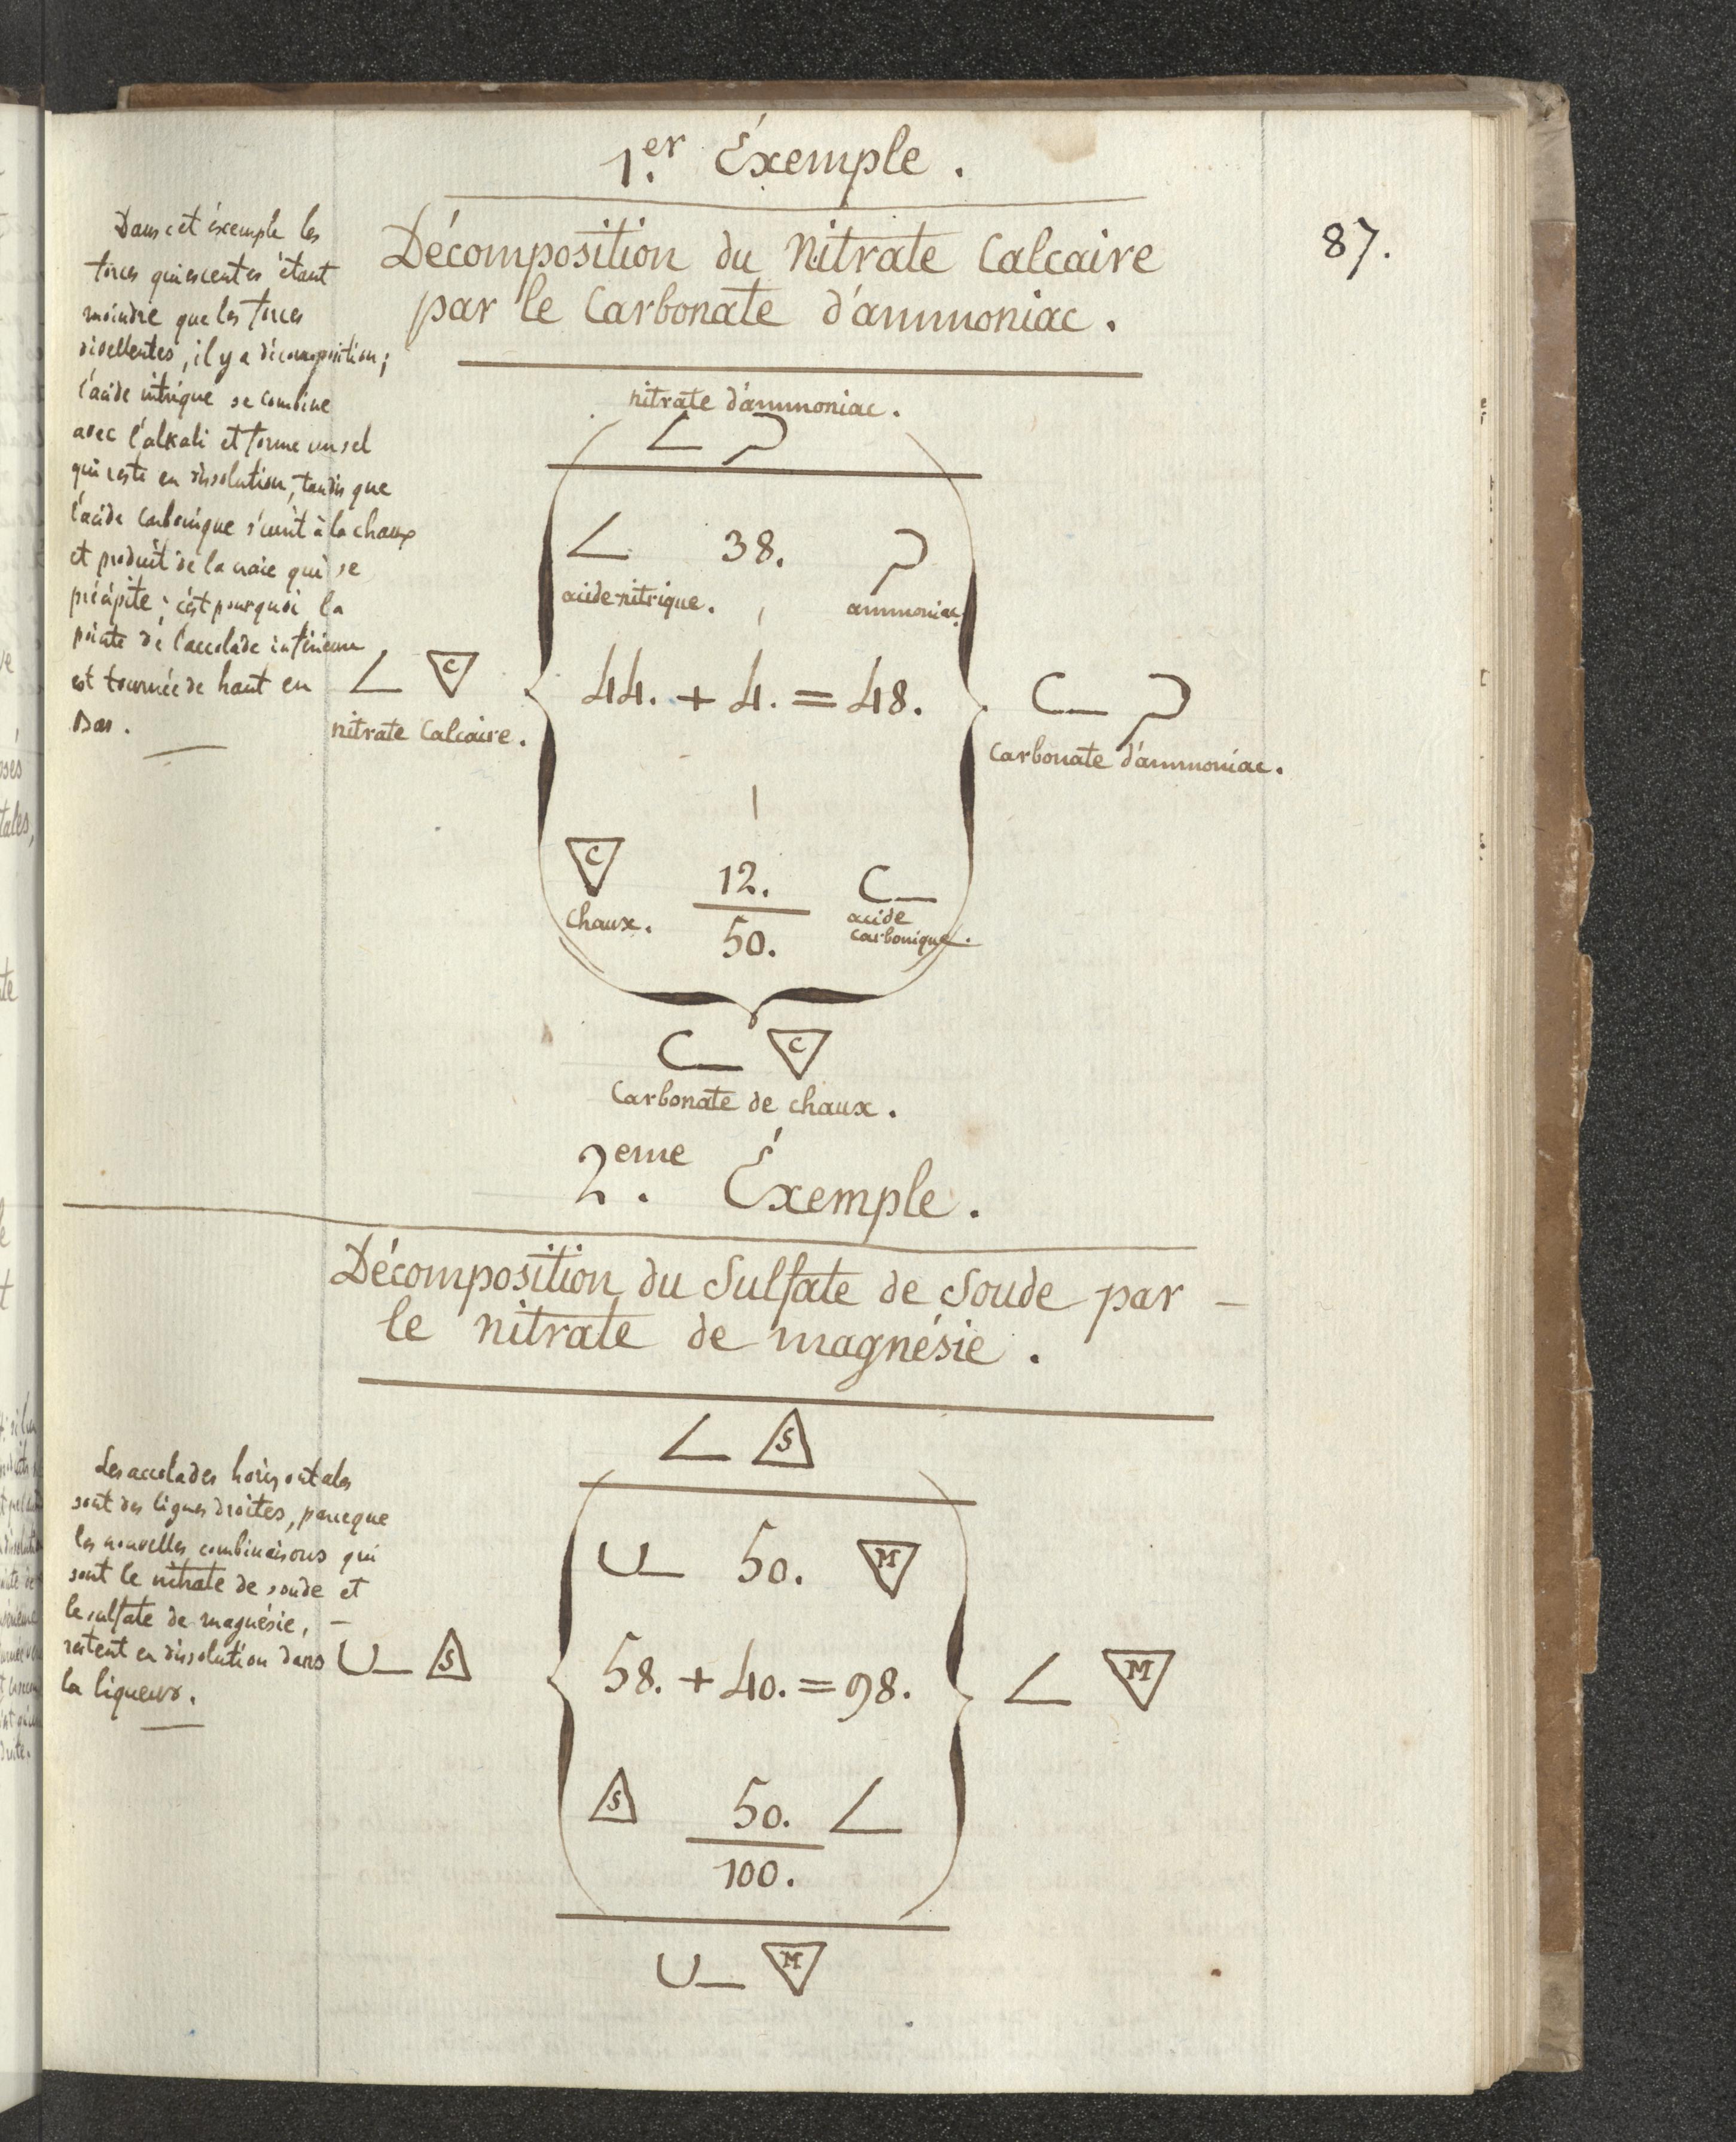 1.er Éxemple.
87.
Décomposition du Nitrate Calcaire
par le Carbonate d'ammoniac.
Dans cet éxemple les
forces quiescentes étant
moindre que les forces
divellentes, il y a décomposition;
l'acide nitrique se combine
avec l'alkali et forme un sel
qui reste en dissolution, tandis que
l'acide Carbonique s'unit à la chaux
et produit de la craie qui se
précipite; c'est pourquoi la
pointe de l'accolade inférieure
est tournée de haut en
Bas.
nitrate d'ammoniac.
38.
acide nitrique. ammoniac.
44. + 4. = 48.
C
nitrate Calcaire.
Carbonate d'ammoniac.
C 12.
chaux. acide
carbonique.
50.
C
Carbonate de chaux.
2.eme Éxemple.
Décomposition du Sulfate de Soude par
le nitrate de magnésie.
Les accolades horisontales
sont des lignes droites, parceque
les nouvelles combinaisons qui
sont le nitrate de soude et
le sulfate de magnésie,
restent en dissolution dans
la liqueur.
S
50. M
S 58. + 40. = 98. M
S 50.
100.
M